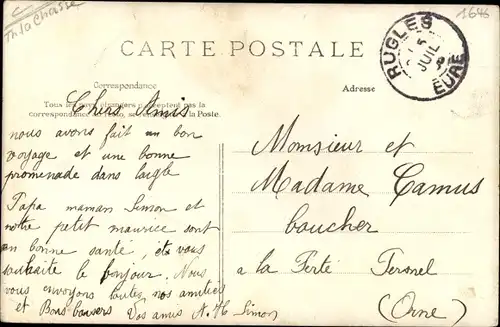 Th. la Chasse
1646
CARTE POSTALE
RUGLES
15
JUIL
EURE
Correspondance
Adresse
Tous les pays étrangers n'acceptent pas la
correspondance au recto, se renseigner à la Poste.
Chers Amis
nous avons fait un bon
voyage et une bonne
promenade dans laigle
Papa maman Simon et
notre petit maurice sont
en bonne santé, et vous
souhaite le bonjour. Nous
vous envoyons toutes nos amitiés
et Bons baisers Vos amis A. H. Simon
Monsieur et
Madame Camus
boucher
a la Ferté Fresnel
(Orne)